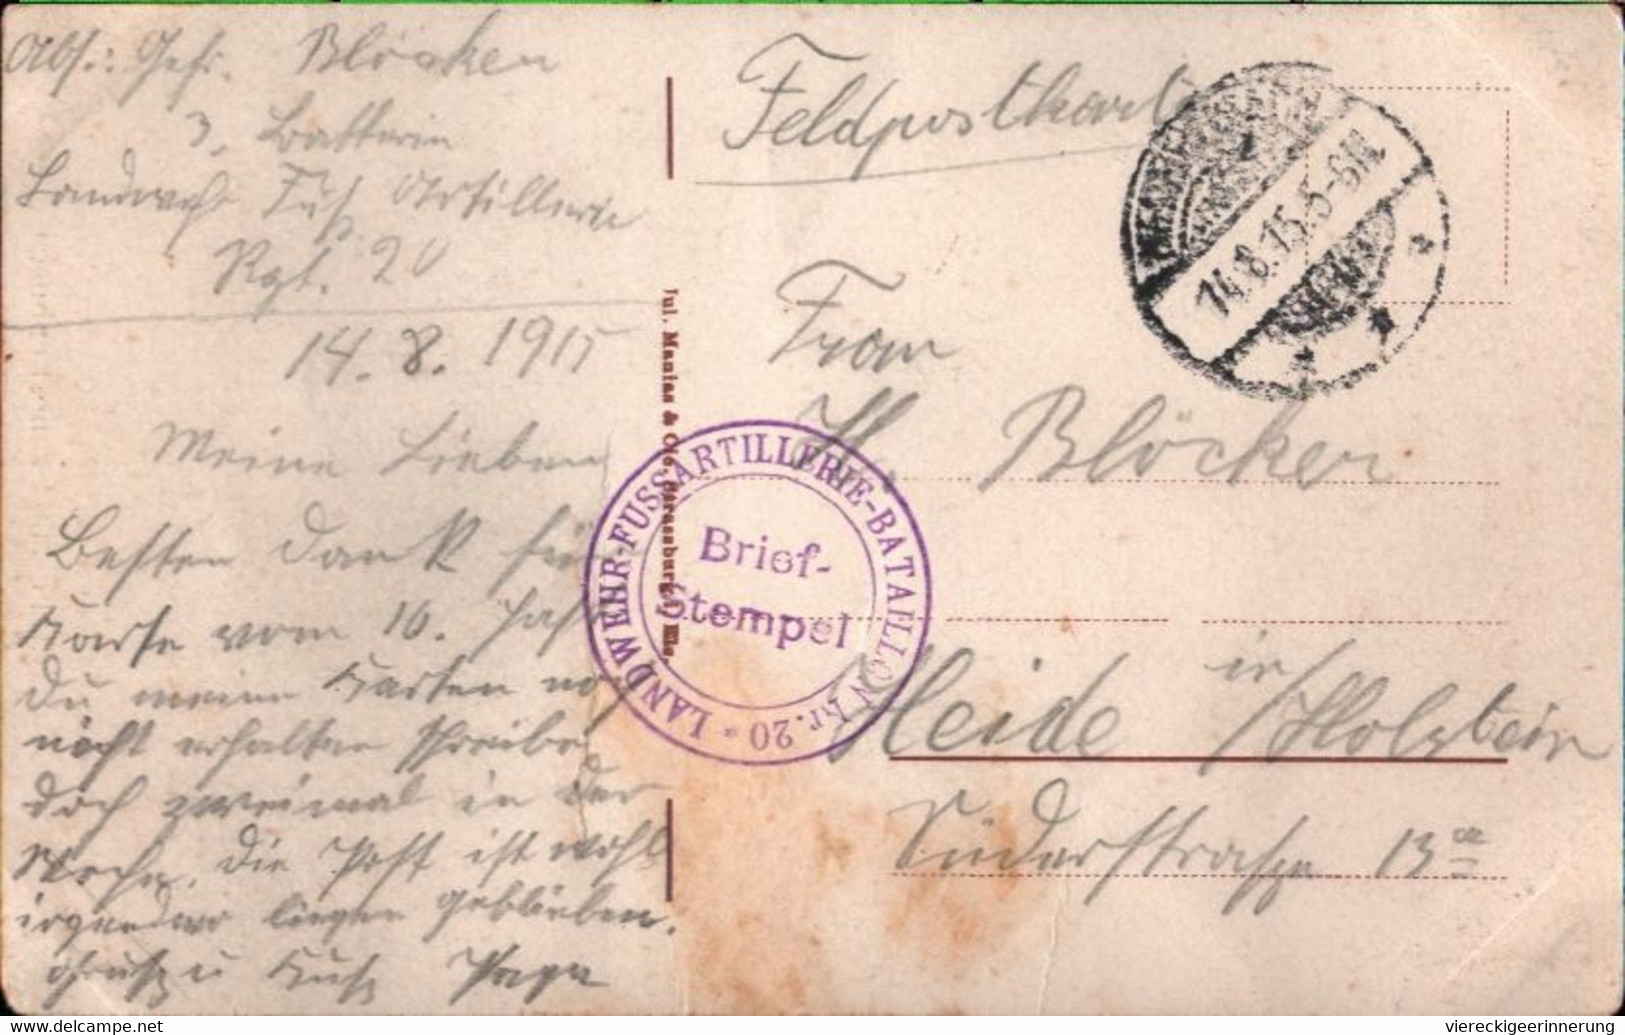 Abs.: Gefr. Blöcker
3. Batterie
Landwehr Fuß Artillerie
Rgt. 20
14. 8. 1915
Meine Lieben
Besten Dank für
Karte vom 10. Habt
Du meine Karten noch
nicht erhalten schreibe
doch zweimal in der
Woche. Die Post ist wohl
irgendwo liegen geblieben.
Gruß u Kuß Papa
Jul. Mantas & Cie, Strassburg i. Els.
Feldpostkarte
14.8.15.5-6N.
Frau
H. Blöcker
LANDWEHR-FUSSARTILLERIE-BATAILLON Nr. 20 *
Brief-
Stempel
Heide in Holstein
Süderstraße 13a
www.delcampe.net
viereckigeerinnerung